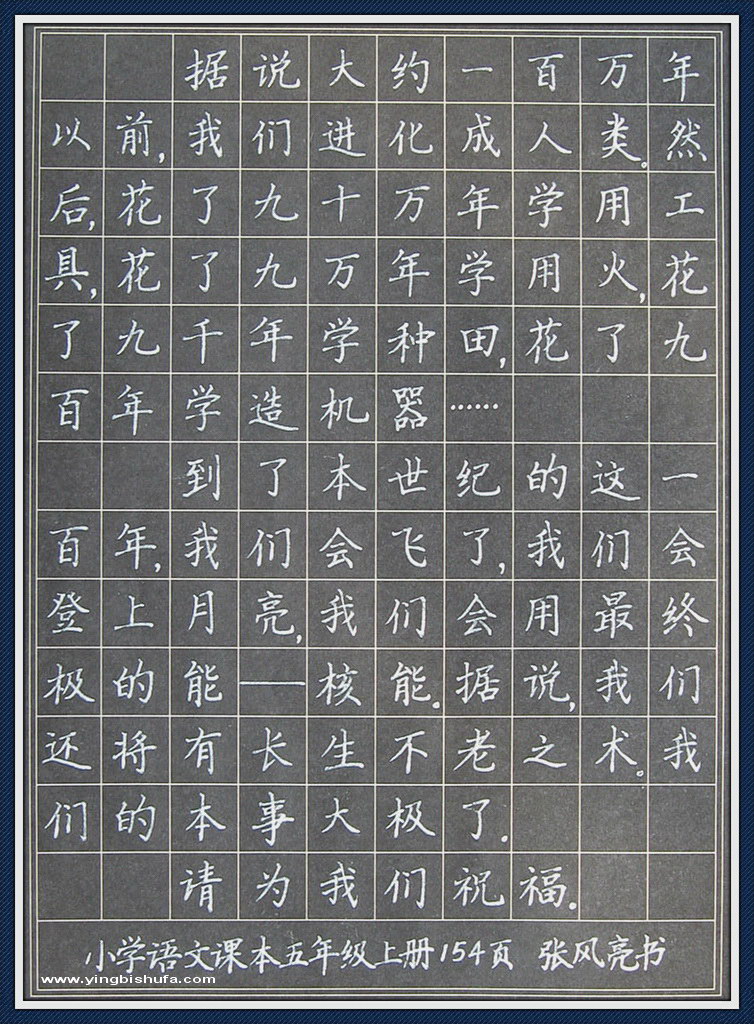 据说大约一百万年
以前,我们进化成人类。然
后,花了九十万年学用工
具,花了九万年学用火,花
了九千年学种田,花了九
百年学造机器……
到了本世纪的这一
百年,我们会飞了,我们会
登上月亮,我们会用最终
极的能——核能。据说,我们
还将有长生不老之术。我
们的本事大极了。
请为我们祝福。
小学语文课本五年级上册154页 张风亮书
www.yingbishufa.com